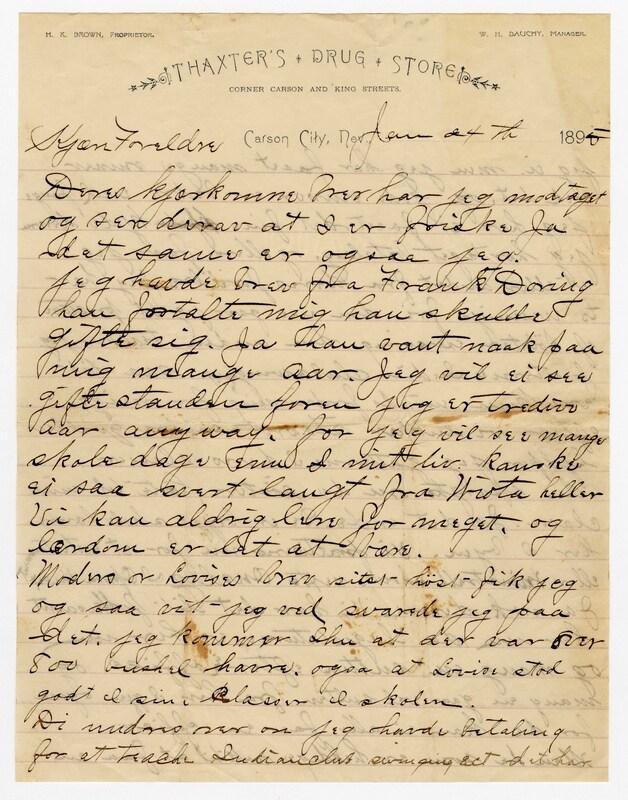 H. K. BROWN, PROPRIETOR.
W. H. DAUCHY, MANAGER.
THAXTER'S DRUG STORE
CORNER CARSON AND KING STREETS.
Carson City, Nev. Jan 24 th 1895
Kjære Foreldre
Deres kjerkomne brev har jeg modtaget
og ser derav at I er friske Ja
det same er ogsaa jeg.
Jeg havde brev fra Frank Doring
han fortalte mig han skulde
gifte sig. Ja han vant nok paa
mig mange aar. Jeg vil ei see
gifte standen foren jeg er tredive
aar anyway. for jeg vil see mange
skole dage enu I mit liv. kanske
ei saa svert langt fra Wiota heller
Vi kan aldrig lere for meget. og
lærdom er let at bære.
Moders or Lovises brev sitst høst fik jeg
og saa vit jeg ved svarede jeg paa
det. jeg kommer ihu at der var over
800 bushel havre. ogsaa at Lovise stod
godt i sine Classer i skolen.
Di undres over om jeg havde betaling
for at teache Indianclub swinging ect det har